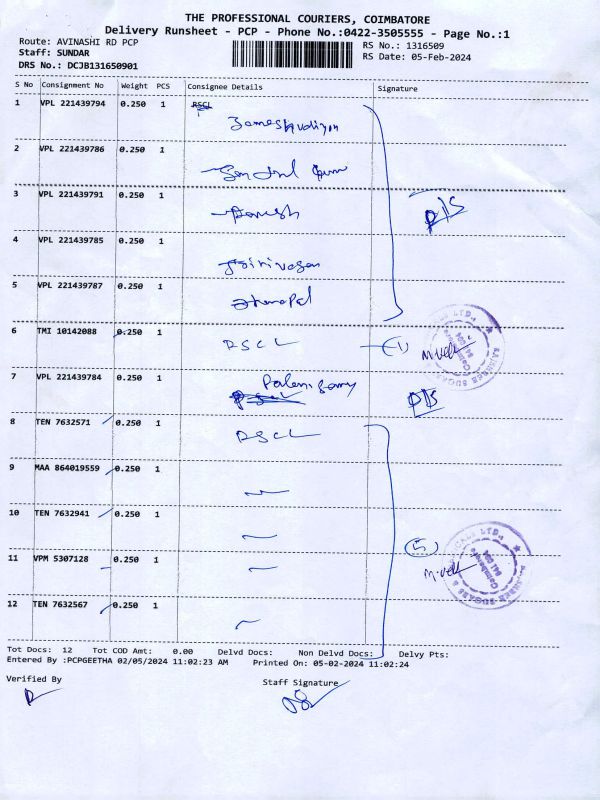 THE PROFESSIONAL COURIERS, COIMBATORE
Delivery Runsheet - PCP - Phone No.:0422-3505555 - Page No.:1
Route: AVINASHI RD PCP
Staff: SUNDAR
DRS No.: DCJB131650901
RS No.: 1316509
RS Date: 05-Feb-2024
S No Consignment No Weight PCS Consignee Details Signature
1 VPL 221439794 0.250 1 RSCL
2 VPL 221439786 0.250 1
3 VPL 221439791 0.250 1
4 VPL 221439785 0.250 1 Srinivasan
5 VPL 221439787 0.250 1
6 TMI 10142088 0.250 1 RSCL (1)
7 VPL 221439784 0.250 1 Palanisamy
8 TEN 7632571 0.250 1 RSCL
9 MAA 864019559 0.250 1
10 TEN 7632941 0.250 1
(5)
11 VPM 5307128 0.250 1
12 TEN 7632567 0.250 1
Tot Docs: 12 Tot COD Amt: 0.00 Delvd Docs: Non Delvd Docs: Delvy Pts:
Entered By :PCPGEETHA 02/05/2024 11:02:23 AM Printed On: 05-02-2024 11:02:24
Verified By Staff Signature